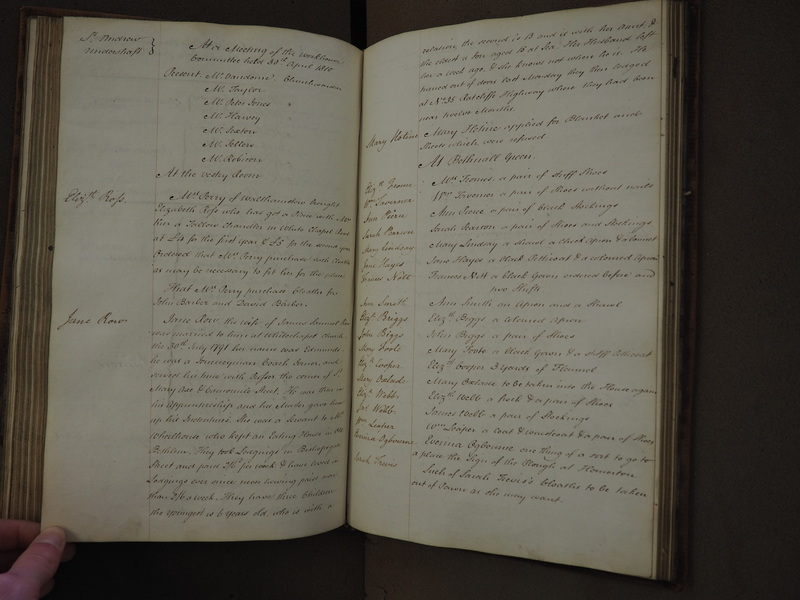 St. Andrew
Undershaft
At a Meeting of the Workhouse
Committee held 30th April 1800
Present Mr. Churchwarden
Mr. Taylor
Mr. John Jones
Mr. Harvey
Mr. Saxton
Mr. Sellers
Mr. Robinson
At the vestry Room
Elizth. Ross.
Mrs. Perry of Walthamstow brought
Elizabeth Ross who has got a Place with Mr.
a Tallow Chandler in White Chapel Road
at £4 for the first year & £5 for the second year
Ordered that Mrs. Perry purchase such Cloaths
as may be necessary to fit her for the place
That Mrs. Perry purchase Cloaths for
John Barber and David Barber.
Jane Row
Jane Row, the wife of James
was married to him at Whitechapel Church
the 30th July 1791 her name was Edmunds
he was a Journeyman Coach Joiner, and
served his time with the corner of St.
Mary Axe & Street. He was
his Apprenticeship and his Master gave him
up his Indentures. She was a Servant to Mr.
who kept an Eating House in Old
Bethlem. They took Lodgings in Bishopsgate
Street and paid per week & have lived in
Lodgings ever since never having paid more
than a week. They have three Children
the youngest is 6 years old, who is with a
relation, the second is 13 and is with her Aunt, &
the eldest a boy aged 18 at Sea. Her Husband left
her a week ago, & she knows not where he is. He
turned out of doors last Monday they then lodged
at No. 95 Ratcliffe Highway where they had been
near twelve Months.
Mary Holme
Mary Holme applied for Blanket and
Sheets which were refused.
At Bethnall Green.
Mrs. a pair of Stuff Shoes
Wm. a pair of Shoes without nails
Ann Peirce
Ann Peirce a pair of black Stockings
Sarah
Sarah a pair of Shoes and Stockings
Mary Lindsay
Mary Lindsay a shawl a check apron & a
Jane Hayes
Jane Hayes a black Petticoat & a coloured Apron
Frances a black Gown ordered before and
two Shifts
Ann Smith
Ann Smith an Apron and a Shawl
Elizth. Briggs
Elizth. Briggs a coloured apron
John Briggs
John Briggs a pair of Shoes
Mary Foote
Mary Foote a black Gown & a stuff Petticoat
Elizth. Cooper
Elizth. Cooper 3 yards of Flannel
Mary
Mary to be taken into the House again
Elizth. Webb
Elizth. Webb a frock & a pair of Shoes
Jas. Webb
James Webb a pair of Stockings
Wm.
Wm. a coat & waistcoat & a pair of Shoes
Ogbourne
Ogbourne one thing of a sort to go to
a place the Sign of the Plough at Homerton
Sarah Trevis
Such of Sarah Trevis's Cloaths to be taken
out of Pawn as she may want.